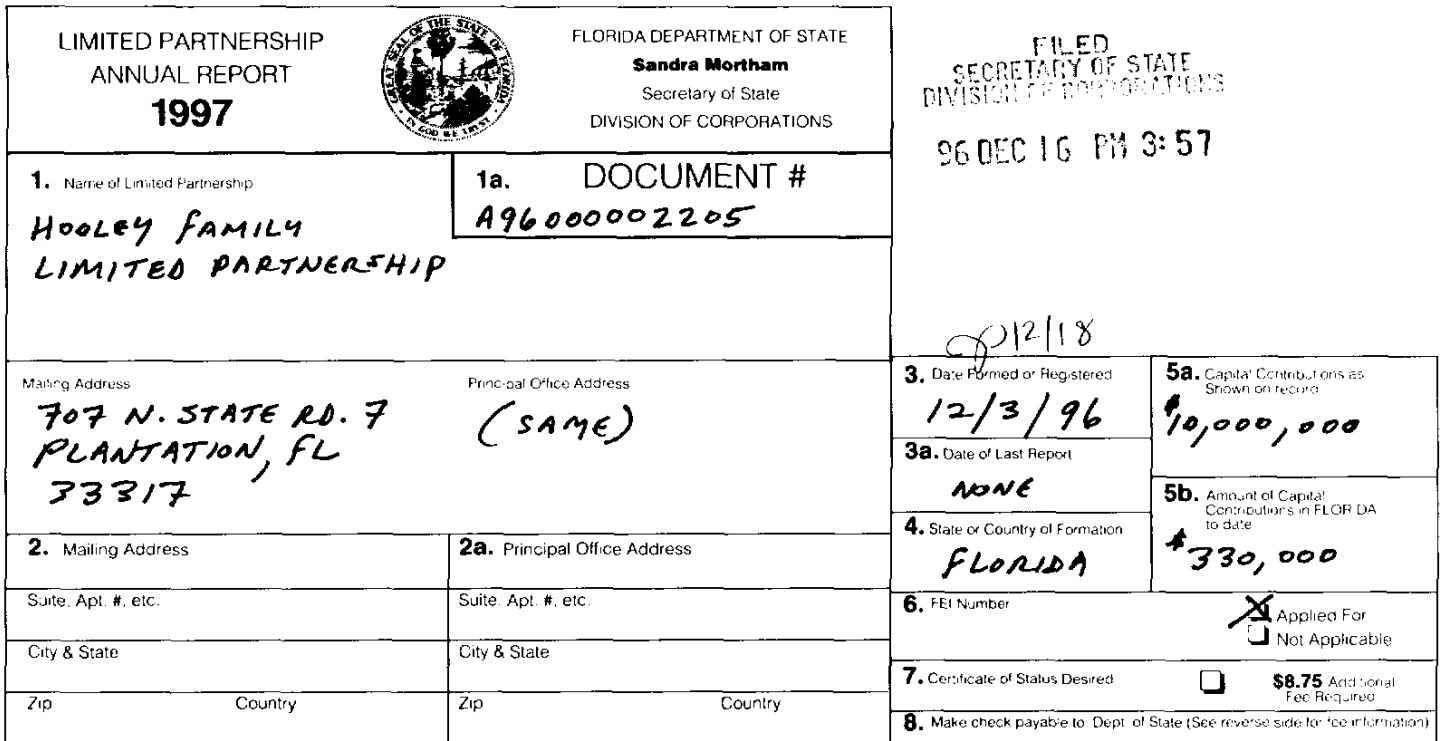 LIMITED PARTNERSHIP
ANNUAL REPORT
1997
GREAT SEAL OF THE STATE OF FLORIDA
IN GOD WE TRUST
FLORIDA DEPARTMENT OF STATE
Sandra Mortham
Secretary of State
DIVISION OF CORPORATIONS
FILED
SECRETARY OF STATE
DIVISION OF CORPORATIONS
96 DEC 16 PM 3:57
1. Name of Limited Partnership
HOOLEY FAMILY
LIMITED PARTNERSHIP
1a. DOCUMENT #
A96000002205
12/18
Mailing Address
707 N. STATE RD. 7
PLANTATION, FL
33317
Principal Office Address
(SAME)
3. Date Formed or Registered
12/3/96
3a. Date of Last Report
NONE
4. State or Country of Formation
FLORIDA
5a. Capital Contributions as
Shown on record
$10,000,000
5b. Amount of Capital
Contributions in FLORIDA
to date
$330,000
2. Mailing Address
2a. Principal Office Address
Suite, Apt. #, etc.
Suite, Apt. #, etc.
City & State
City & State
Zip Country
Zip Country
6. FEI Number
Applied For
Not Applicable
7. Certificate of Status Desired
$8.75 Additional
Fee Required
8. Make check payable to Dept. of State (See reverse side for fee information)